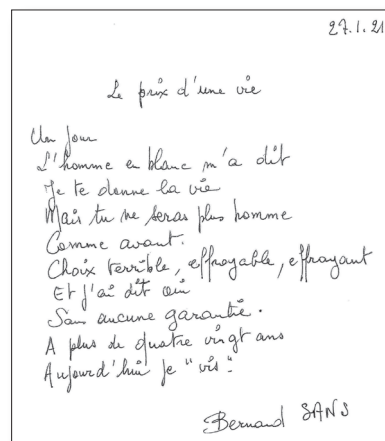 27.1.21
Le prix d'une vie
Un jour
L'homme en blanc m'a dit
Je te donne la vie
Mais tu ne seras plus homme
Comme avant.
Choix terrible, effroyable, effrayant
Et j'ai dit oui
Sans aucune garantie.
A plus de quatre vingt ans
Aujourd'hui je "vis".
Bernard SANS